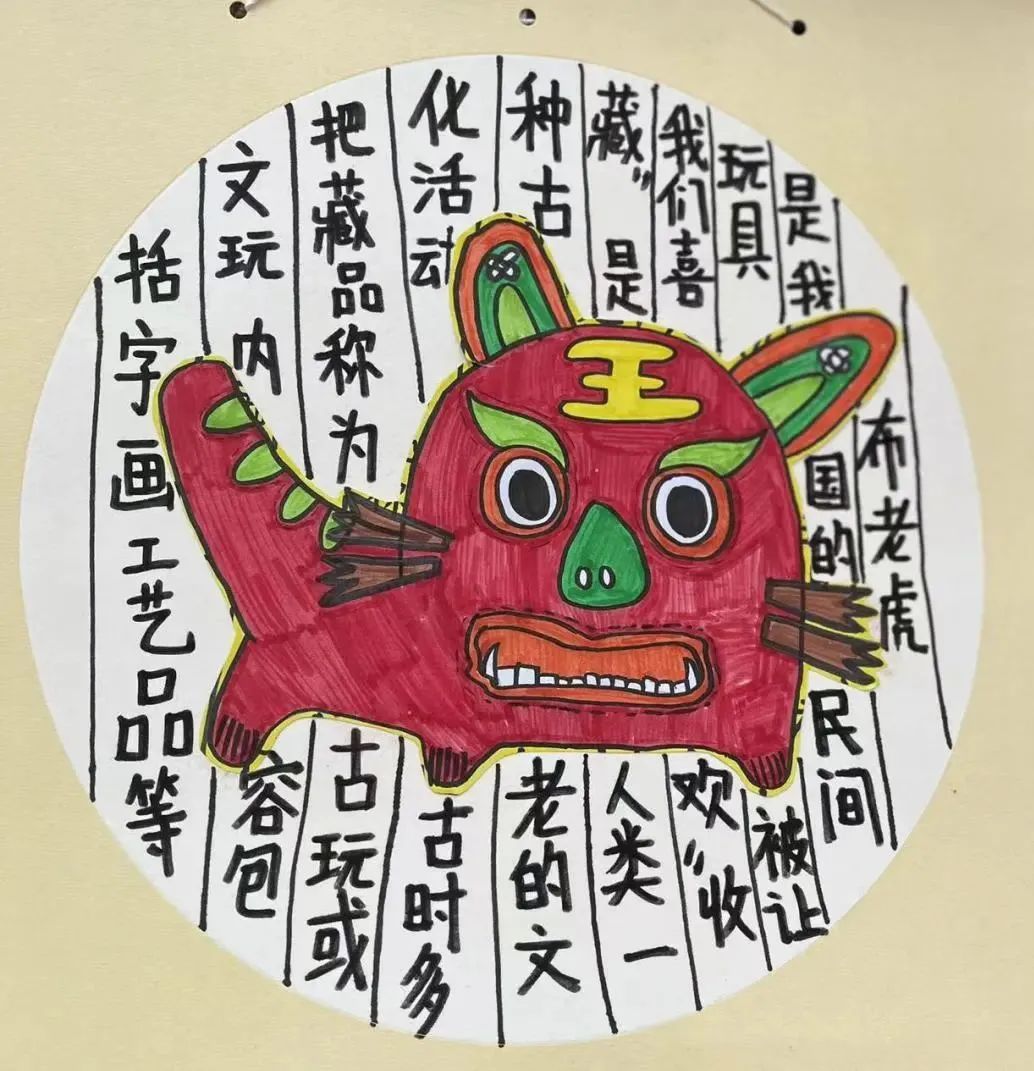 布老虎
是我国的民间
玩具被让
我们喜欢”收
藏”是人类一
种古老的文
化活动古时多
把藏品称为古玩或
文玩 内容包
括字画工艺品等
王